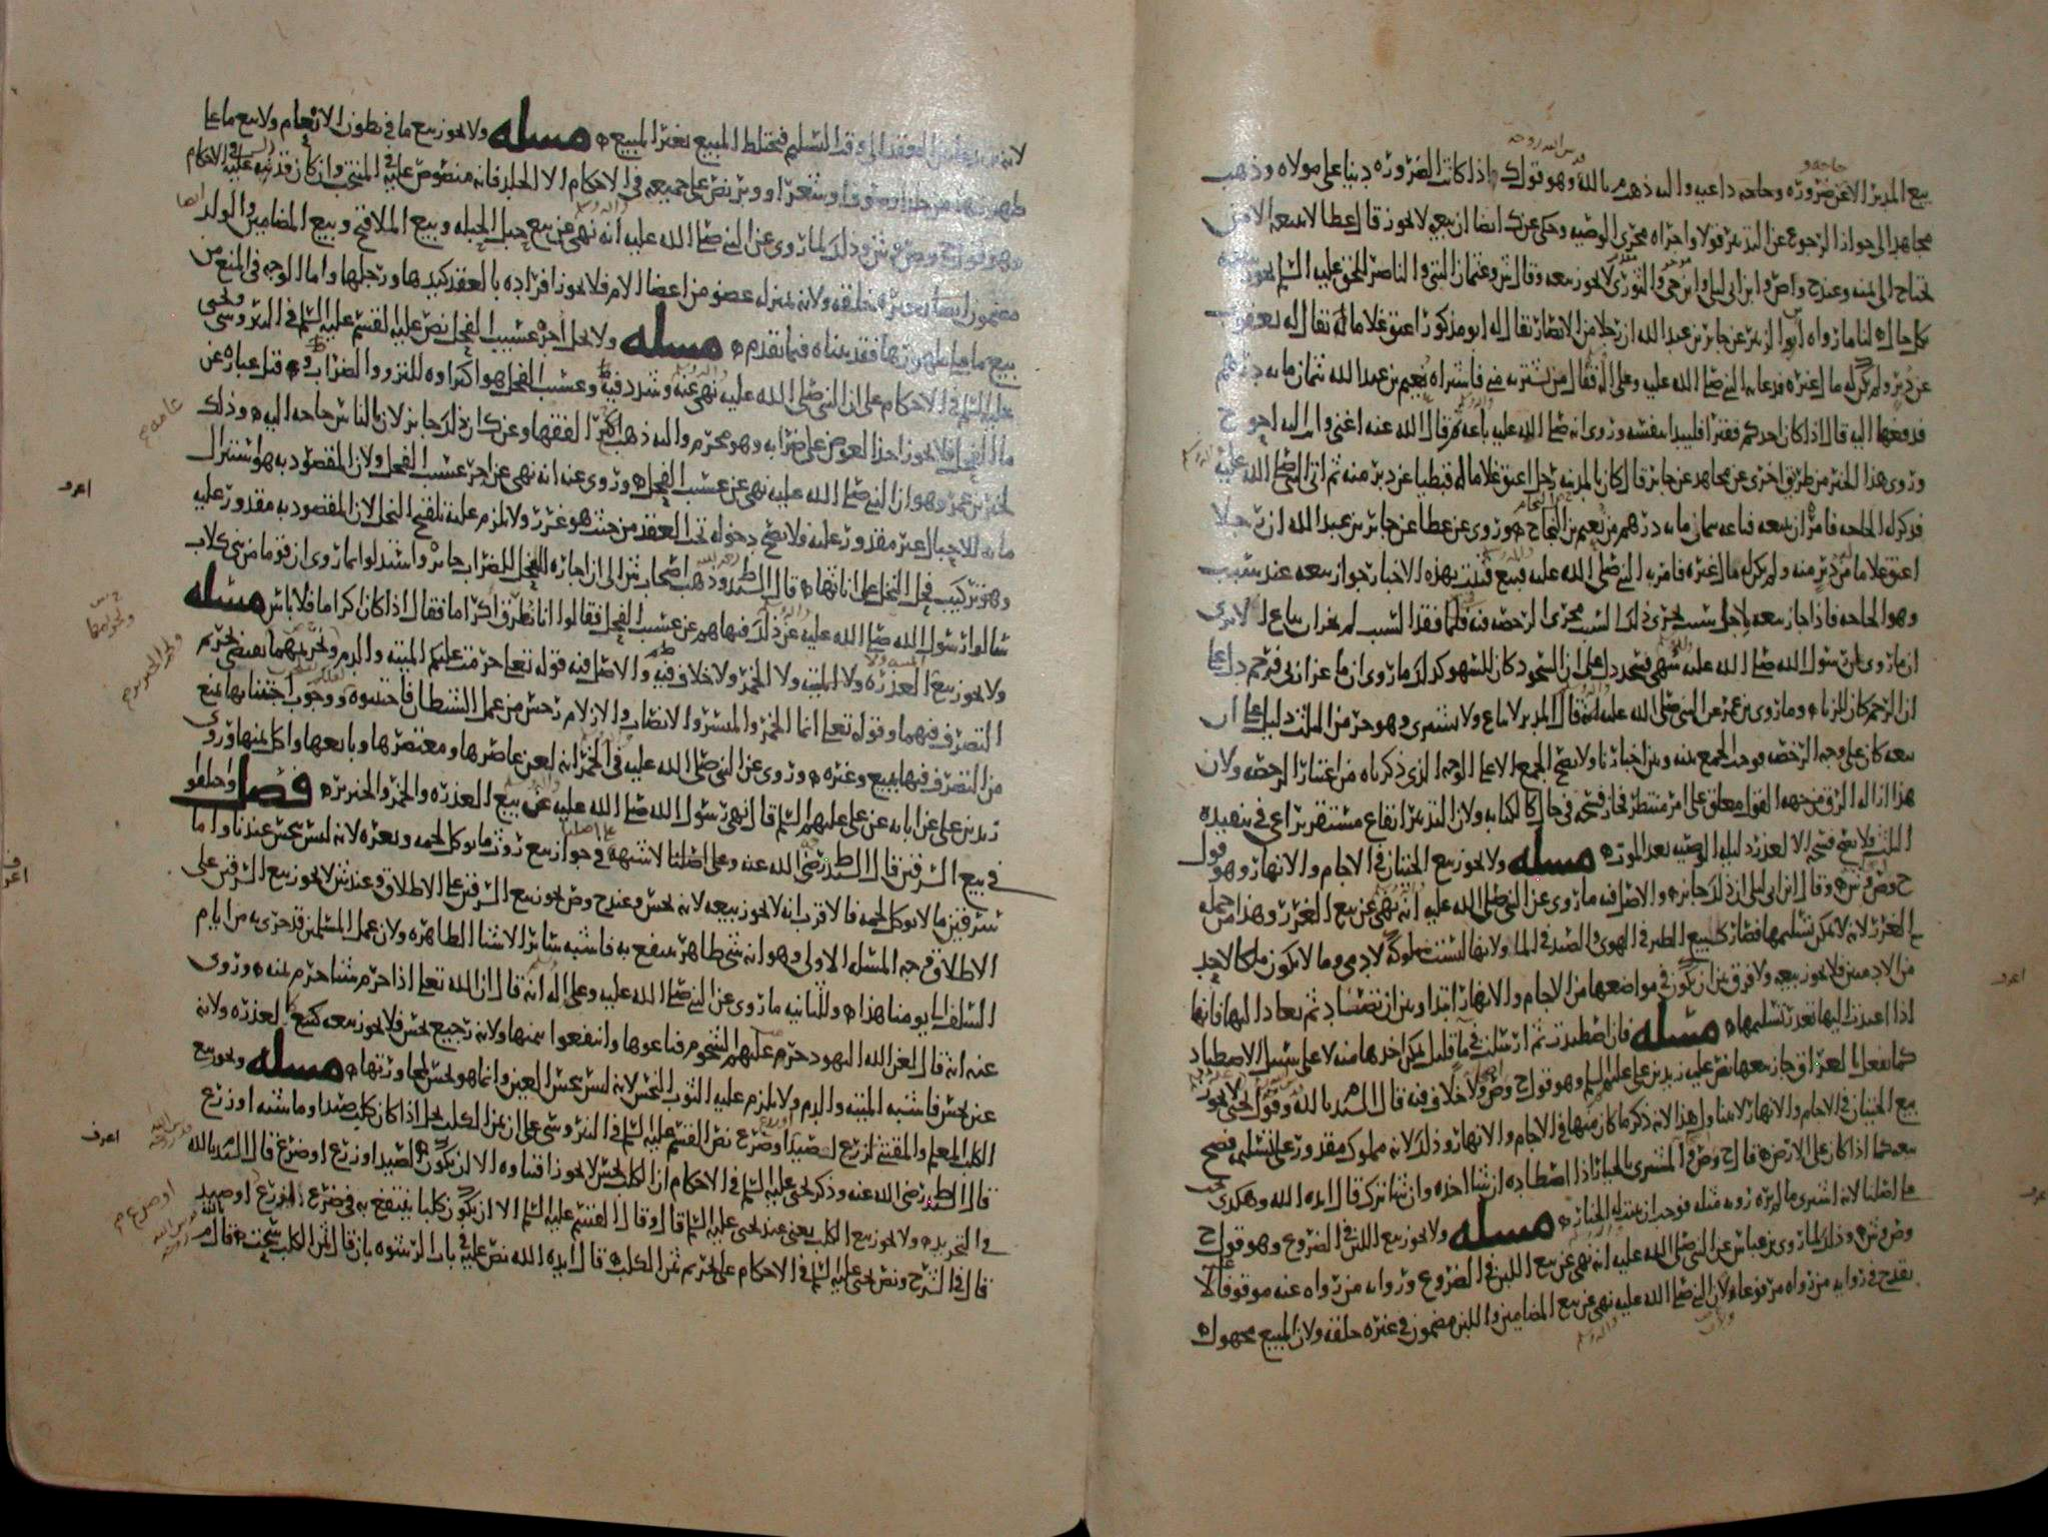 بيع المدبر الا عن ضروره وحاجه داعيه واليه ذهب م بالله وهو قول ك اذا كانت الضروره دينا على مولاه وذهب
مجاهد الى جواز الرجوع عن التدبير قولا واجراه مجرى الوصيه وحكى عن ك ايضا ان بيعه لا يجوز قال عطا لا يبيعه الا من
يحتاج الى ثمنه وعند ح واص وابن ابي ليلى وابن حي والثوري لا يجوز بيعه وقال ش وعثمان البتي والناصر للحق عليه السلم يجوز بيعه
بكل حال لنا ما رواه ابو الزبير عن جابر بن عبد الله ان رجلا من الانصار يقال له ابو مذكور اعتق غلاما له يقال له يعقوب
عن دبر ولم يكن له مال غيره فدعا به النبي صلى الله عليه وعلى اله فقال من يشتريه مني فاشتراه نعيم بن عبد الله بثمان مايه درهم
فدفعها اليه قال اذا كان احدكم فقيرا فليبدا بنفسه وروي انه صلى الله عليه باعه وقال الله عنه اغنى وانت اليه احوج
وروي هذا الخبر من طريق اخرى عن مجاهد عن جابر قال كان بالمدينه رجل اعتق غلاما له قبطيا عن دبر منه ثم اتى النبي صلى الله عليه
فذكر له الحاجه فامره ان يبيعه فباعه بثمان مايه درهم من نعيم بن النحام وروي عن عطا عن جابر بن عبد الله ان رجلا
اعتق غلاما عن دبر منه ولم يكن له مال غيره فامر به النبي صلى الله عليه فبيع فثبت بهذه الاخبار جواز بيعه عند سبب
وهو الحاجه فاذا جاز بيعه لاجل سبب يجري ذلك السبب مجرى الرخصه فيه فكلما فقد السبب لم يجز ان يباع الا ترى
ان ما روي ان رسول الله صلى الله عليه سهى فسجد دل على ان السجود كان للسهو كذلك ما روي ان ماعزا زنى فرجم دل على
ان الرجم كان للزنا وما روى بن عمر عن النبي صلى الله عليه انه قال المدبر لا يباع ولا يشترى وهو حر من الثلث دليل على ان
بيعه كان على وجه الرخصه فوجب الجمع بينه وبين اخبارنا ولا يصح الجمع الا على الوجه الذي ذكرناه من اعتبار الرخصه ولان
هذا ازاله الرق من جهه القول معلق على امر منتظر فجاز فسخه في حال كالكتابه ولان التدبير ايقاع مستقر يراعى في تنفيذه
الثلث فلا يصح فسخه الا لعذر دليله الوصيه بعد الموت مسله ولا يجوز بيع الحيتان في الاجام والانهار وهو قول
ح وص وش وقال ابن ابي ليلى ان ذلك جايز والاصل فيه ما روي عن النبي صلى الله عليه انه نهى عن بيع الغرر وهذا من جمله
الغرر لانه لا يمكن تسليمها فصار كبيع الطير في الهوى والصيد في الماء ولانها ليست مملوكه لادمي وما لا يكون ملكا لاحد
من الادميين فلا يجوز بيعه ولا فرق بين ان يكون في مواضعها من الاجام والانهار ابتدا وبين ان تصطاد ثم يعاد اليها فانها
اذا اعيدت اليها تعذر تسليمها مسله فان اصطيدت ثم ارسلت في ما قليل يمكن اخذها منه لا على سبيل الاصطياد
كما يفعل بالعراق جاز بيعها نص عليه زيد بن علي عليهم السلم وهو قول ح وص ولا خلاف فيه قال السيد م بالله وقول يحيى لا يجوز
بيع الحيتان في الاجام والانهار لا يتناول هذا لانه ذكر ما كان منها في الاجام والانهار وذلك لانه مملوك مقدور على تسليمه فصح
بيعه كما اذا كان على الارض قال ح وص والمشتري بالخيار اذا اصطاده ان شا اخذه وان شا ترك قال ايده الله وهكذى يجي
على اصلنا لانه اشترى ما لم يره رويه مثله فوجب ان يثبت له الخيار مسله ولا يجوز بيع اللبن في الضروع وهو قول ح
وص وش وذلك لما روي بن عباس عن النبي صلى الله عليه انه نهى عن بيع اللبن في الضروع وروايه من رواه عنه موقوفا لا
يقدح في روايه من رواه مرفوعا ولان النبي صلى الله عليه نهى عن بيع المضامين واللبن مضمون في غيره خلقه ولان المبيع مجهول
العقد الى وقت التسليم فيختلط المبيع بغير المبيع مسله ولا يجوز بيع ما في بطون الانعام ولا بيع ما على
ظهورها من جلد او صوف او شعر او وبر نص على جميعه في الاحكام الا الجلد فانه منصوص عليه في المنتخب وان كان قد نبه عليه في الاحكام
وهو قول ح وص وش وذلك لما روي عن النبي صلى الله عليه انه نهى عن بيع حبل الحبله وبيع الملاقيح وبيع المضامين والولد
مضمون ايضا بغيره خلقه ولانه بمنزله عضو من اعضا الام فلا يجوز افراده بالعقد كيدها ورجلها واما الوجه في المنع من
بيع ما على ظهورها فقد بيناه فيما تقدم مسله ولا يحل اجره عسيب الفحل نص عليه القسم عليه السلم في النيروسي ويحيى
عليه السلم في الاحكام على ان النبي صلى الله عليه نهى عنه وشدد فيه وعسب الفحل هو اكراوه للنزو والضراب وقيل عباره عن
ما الفحل فلا يجوز اخذ العوض على ضرابه وهو محرم واليه ذهب اكثر الفقها وعن ك ان ذلك جايز لان بالناس حاجه اليه وذلك
لخبر بن عمر وهو ان النبي صلى الله عليه نهى عن عسب الفحل وروي عنه انه نهى عن اجر عسب الفحل ولان المقصود به هو استنزال
مايه للاحبال غير مقدور عليه فلا يصح دخوله تحت العقد من حيث هو غرر ولا يلزم عليه تلقيح النخل لان المقصود به مقدور عليه
وهو تركيب فحل النخل على اناثها قال السيد ط وذهب اصحاب ش الى ان اجاره الفحل للضراب جايز واستدلوا بما روي ان قوما من بني كلاب
سالوا رسول الله صلى الله عليه عن ذلك فنهاهم عن عسب الفحل فقالوا انا نطرق اكراما فقال اذا كان اكراما فلا باس مسله
ولا يجوز بيع العذره ولا الميته ولا الخمر ولا خلاف فيه والاصل فيه قوله تعلى حرمت عليكم الميته والدم وتحريمهما يقتضي تحريم
التصرف فيهما وقوله تعلى انما الخمر والميسر والانصاب والازلام رجس من عمل الشيطان فاجتنبوه ووجوب اجتنابها يمنع
من التصرف فيها ببيع وغيره وروي عن النبي صلى الله عليه في الخمر انه لعن عاصرها ومعتصرها وبايعها واكل ثمنها وروى
زيد بن علي عن ابايه عن علي عليهم السلم قال نهى رسول الله صلى الله عليه عن بيع العذره والخمر والخنزير فصل واختلفوا
في بيع السرقين قال السيد ط رضي الله عنه وعلى اصلنا لا شبهه في جواز بيع روث ما يوكل لحمه وبعره لانه ليس بنجس عندنا واما
سرقين ما لا يوكل لحمه فالاقرب انه لا يجوز بيعه لانه نجس وعند ح وص يجوز بيع السرقين على الاطلاق وعند ش لا يجوز بيع السرقين على
الاطلاق فوجه المسله الاولى وهو انه شي طاهر ينتفع به فاشبه ساير الاشيا الطاهره ولان عمل المسلمين قد جرى به من ايام
السلف الى يومنا هذا وللثانيه ما روي عن النبي صلى الله عليه وعلى اله انه قال ان الله تعلى اذا حرم شيا حرم ثمنه وروي
عنه انه قال لعن الله اليهود حرم عليهم الشحوم فباعوها وانتفعوا بثمنها ولانه رجيع نجس فلا يجوز بيعه كبيع العذره ولانه
عين نجس فاشبه الميته والدم ولا يلزم عليه الثوب النجس لانه ليس بنجس العين وانما هو نجس لمجاورتها مسله ويجوز بيع
الكلب المعلم والمقتنى لزرع او صيد او ضرع نص القسم عليه السلم في النيروسي على ان ثمن الكلب يحل اذا كان كلب صيد او ماشيه او زرع
قال السيد ط رضي الله عنه وذكر يحيى عليه السلم في الاحكام ان الكلب نجس لا يجوز اقتناوه الا ان يكون لصيد او زرع او ضرع قال السيد م بالله
في التجريد ولا يجوز بيع الكلب يعني عند يحيى عليه السلم قال وقال القسم عليه السلم الا ان يكون كلبا ينتفع به في ضرع او زرع او صيد
قال في الشرح ونص يحيى عليه السلم في الاحكام على تحريم ثمن الكلب قال ايده الله نص عليه في باب الرشوه بان قال ثمن الكلب سحت قال م